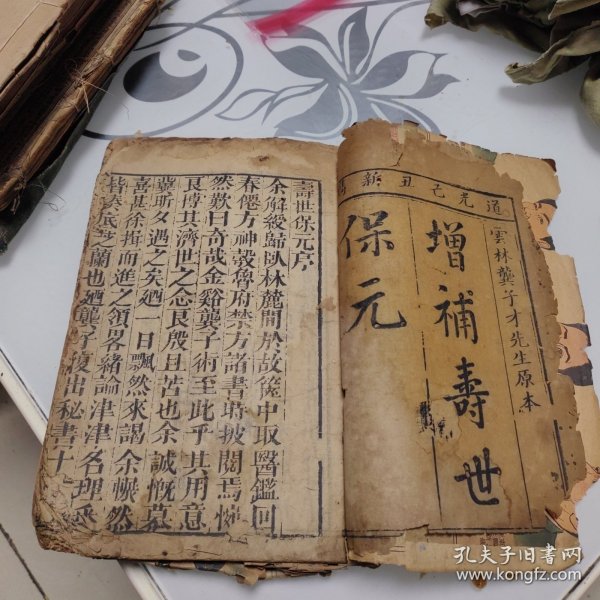 道光己丑新
雲林龔子才先生原本
增補壽世
保元
壽世保元序
余解綬歸臥林麓間於故篋中取醫鑑回
春僊方神彀魯府禁方諸書時披閱焉惋
然歎曰奇哉金谿龔子術至此乎其用意
良博其濟世之念良殷且苦也余誠慨慕
冀斯夕遇之矣廼一日飄然來謁余愀然
喜甚徐揖而進之領畧緒論津津名理
蘭也廼龔子復出秘書十
孔夫子旧书网
www.kongfz.com